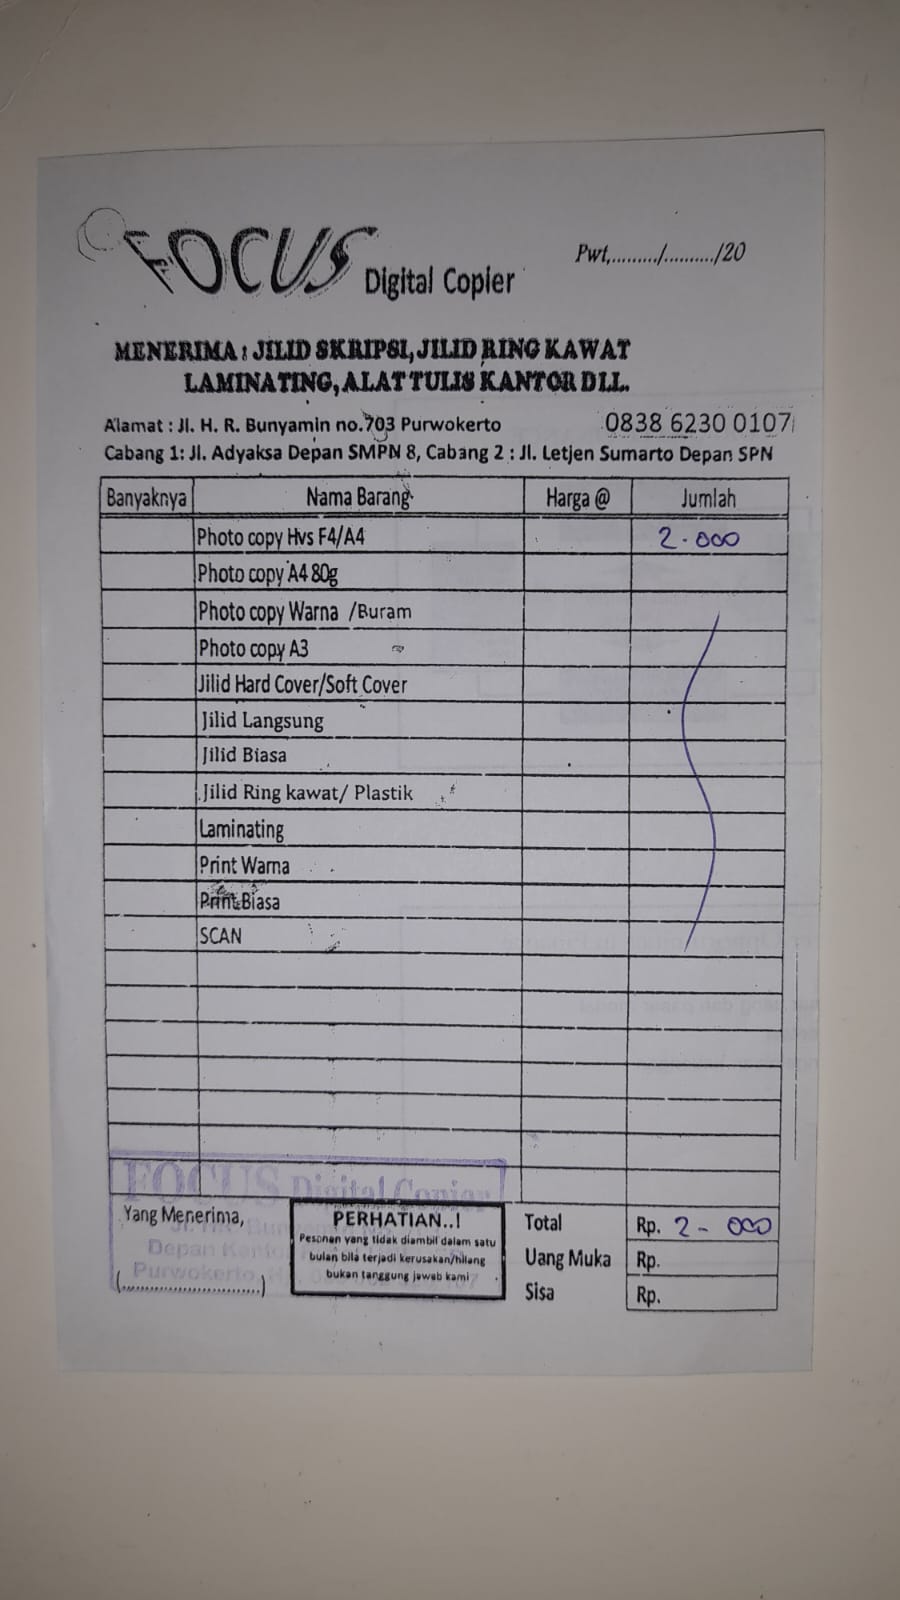 FOCUS Digital Copier
Pwt,........./........../20
MENERIMA : JILID SKRIPSI, JILID RING KAWAT
LAMINATING, ALAT TULIS KANTOR DLL.
Alamat : Jl. H. R. Bunyamin no.703 Purwokerto 0838 6230 0107
Cabang 1: Jl. Adyaksa Depan SMPN 8, Cabang 2 : Jl. Letjen Sumarto Depan SPN
Banyaknya Nama Barang Harga @ Jumlah
Photo copy Hvs F4/A4 2.000
Photo copy A4 80g
Photo copy Warna /Buram
Photo copy A3
Jilid Hard Cover/Soft Cover
Jilid Langsung
Jilid Biasa
Jilid Ring kawat/ Plastik
Laminating
Print Warna
Print Biasa
SCAN
FOCUS Digital Copier
Depan
Purwokerto
Yang Menerima,
(..............................)
PERHATIAN..!
Pesanan yang tidak diambil dalam satu
bulan bila terjadi kerusakan/hilang
bukan tanggung jawab kami
Total Rp. 2-000
Uang Muka Rp.
Sisa Rp.